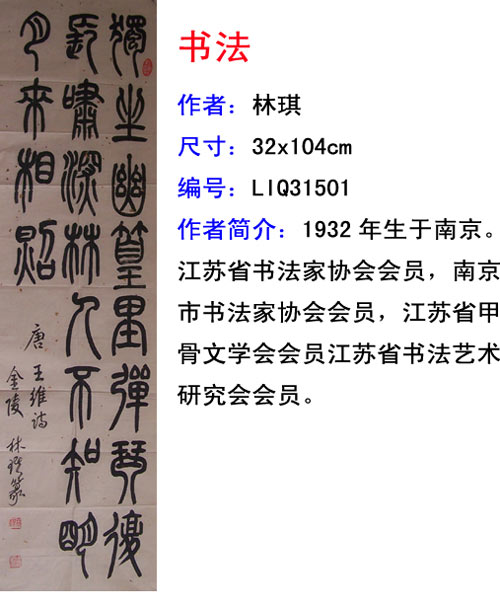 獨坐幽篁里彈琴復
長嘯深林人不知明
月來相照
唐王維詩
金陵 林琪篆
书法
作者：林琪
尺寸：32x104cm
编号：LIQ31501
作者简介：1932年生于南京。
江苏省书法家协会会员，南京
市书法家协会会员，江苏省甲
骨文学会会员江苏省书法艺术
研究会会员。